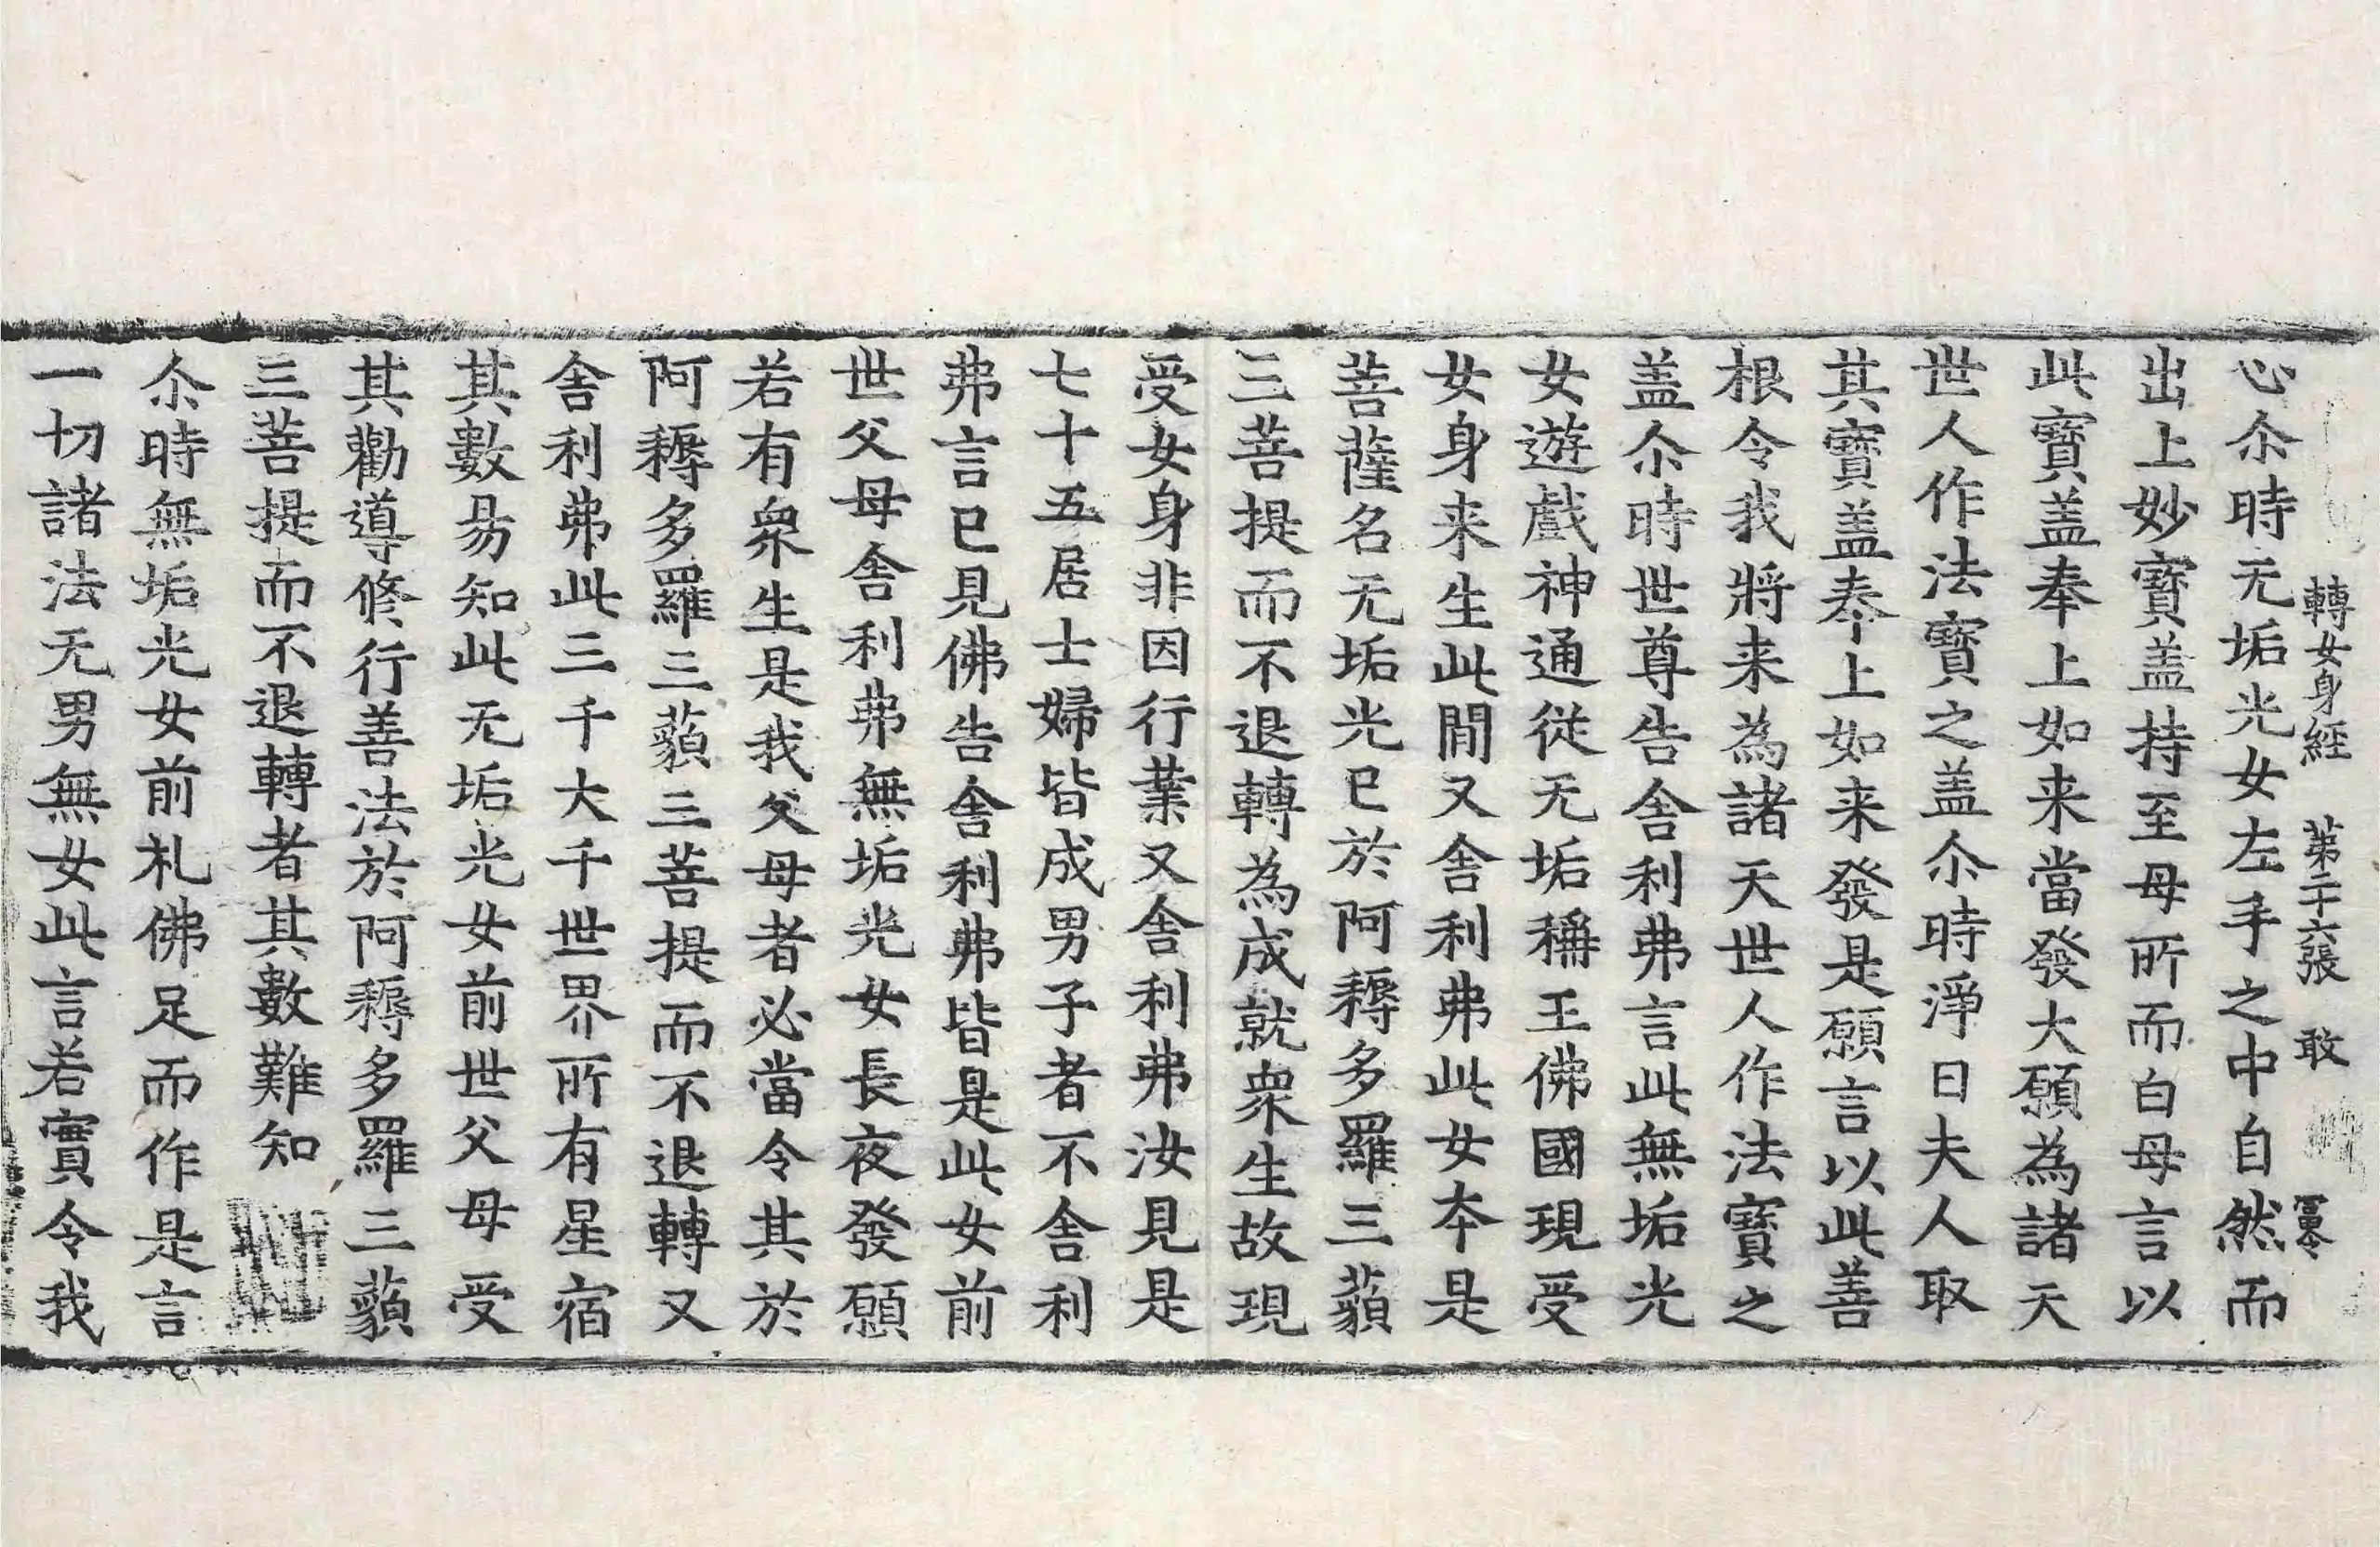 轉女身經　第二十六張　敢
心尒時无垢光女左手之中自然而
出上妙寶盖持至母所而白母言以
此寶盖奉上如来當發大願為諸天
世人作法寶之盖尒時淨日夫人取
其寶盖奉上如来發是願言以此善
根令我將来為諸天世人作法寶之
盖尒時世尊告舎利弗言此無垢光
女遊戲神通從无垢稱王佛國現受
女身来生此間又舎利弗此女夲是
菩薩名无垢光已於阿耨多羅三藐
三菩提而不退轉為成就衆生故現
受女身非因行業又舎利弗汝見是
七十五居士婦皆成男子者不舎利
弗言已見佛告舎利弗皆是此女前
世父母舎利弗無垢光女長夜發願
若有衆生是我父母者必當令其於
阿耨多羅三藐三菩提而不退轉又
舎利弗此三千大千世界所有星宿
其數昜知此无垢光女前世父母受
其勸導修行善法於阿耨多羅三藐
三菩提而不退轉者其數難知
尒時無垢光女前礼佛足而作是言
一切諸法无男無女此言若實令我